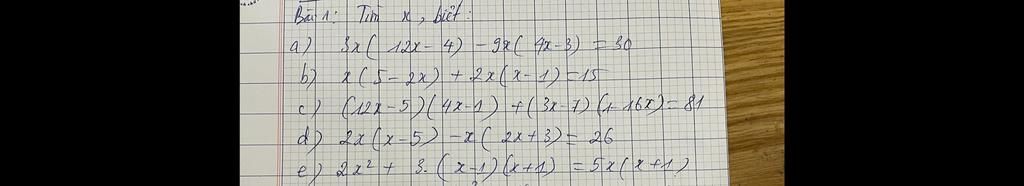 Bài 1: Tìm x, biết:
a) 3x( 12x - 4) - 9x( 4x-3) = 30
b) x(5 - 2x) + 2x(x-1) = 15
c) (12x-5)(4x-1) + (3x-7)(1-16x) = 81
d) 2x(x-5) - x( 2x+3) = 26
e) 2x² + 3.(x-1)(x+1) = 5x(x+1)